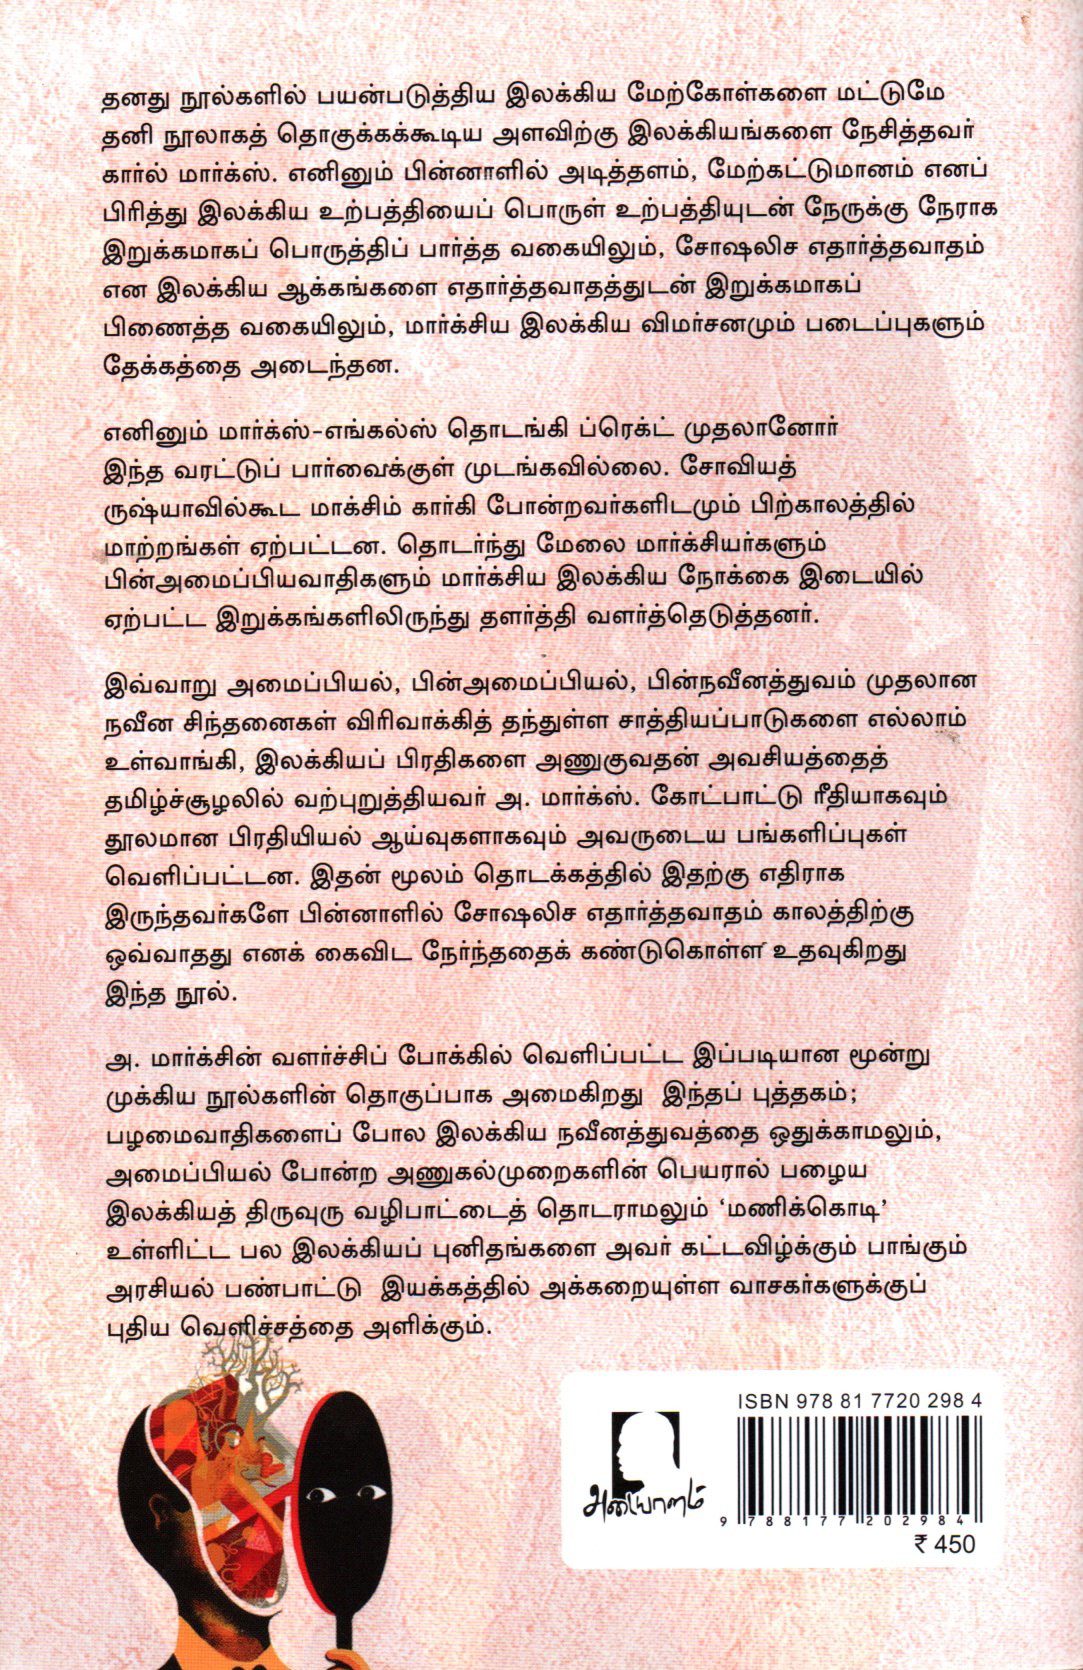 தனது நூல்களில் பயன்படுத்திய இலக்கிய மேற்கோள்களை மட்டுமே
தனி நூலாகத் தொகுக்கக்கூடிய அளவிற்கு இலக்கியங்களை நேசித்தவர்
கார்ல் மார்க்ஸ். எனினும் பின்னாளில் அடித்தளம், மேற்கட்டுமானம் எனப்
பிரித்து இலக்கிய உற்பத்தியைப் பொருள் உற்பத்தியுடன் நேருக்கு நேராக
இறுக்கமாகப் பொருத்திப் பார்த்த வகையிலும், சோஷலிச எதார்த்தவாதம்
என இலக்கிய ஆக்கங்களை எதார்த்தவாதத்துடன் இறுக்கமாகப்
பிணைத்த வகையிலும், மார்க்சிய இலக்கிய விமர்சனமும் படைப்புகளும்
தேக்கத்தை அடைந்தன.
எனினும் மார்க்ஸ்-எங்கல்ஸ் தொடங்கி ப்ரெக்ட் முதலானோர்
இந்த வரட்டுப் பார்வைக்குள் முடங்கவில்லை. சோவியத்
ருஷ்யாவில்கூட மாக்சிம் கார்கி போன்றவர்களிடமும் பிற்காலத்தில்
மாற்றங்கள் ஏற்பட்டன. தொடர்ந்து மேலை மார்க்சியர்களும்
பின்அமைப்பியவாதிகளும் மார்க்சிய இலக்கிய நோக்கை இடையில்
ஏற்பட்ட இறுக்கங்களிலிருந்து தளர்த்தி வளர்த்தெடுத்தனர்.
இவ்வாறு அமைப்பியல், பின்அமைப்பியல், பின்நவீனத்துவம் முதலான
நவீன சிந்தனைகள் விரிவாக்கித் தந்துள்ள சாத்தியப்பாடுகளை எல்லாம்
உள்வாங்கி, இலக்கியப் பிரதிகளை அணுகுவதன் அவசியத்தைத்
தமிழ்ச்சூழலில் வற்புறுத்தியவர் அ. மார்க்ஸ். கோட்பாட்டு ரீதியாகவும்
தூலமான பிரதியியல் ஆய்வுகளாகவும் அவருடைய பங்களிப்புகள்
வெளிப்பட்டன. இதன் மூலம் தொடக்கத்தில் இதற்கு எதிராக
இருந்தவர்களே பின்னாளில் சோஷலிச எதார்த்தவாதம் காலத்திற்கு
ஒவ்வாதது எனக் கைவிட நேர்ந்ததைக் கண்டுகொள்ள உதவுகிறது
இந்த நூல்.
அ. மார்க்சின் வளர்ச்சிப் போக்கில் வெளிப்பட்ட இப்படியான மூன்று
முக்கிய நூல்களின் தொகுப்பாக அமைகிறது இந்தப் புத்தகம்;
பழமைவாதிகளைப் போல இலக்கிய நவீனத்துவத்தை ஒதுக்காமலும்,
அமைப்பியல் போன்ற அணுகல்முறைகளின் பெயரால் பழைய
இலக்கியத் திருவுரு வழிபாட்டைத் தொடராமலும் ‘மணிக்கொடி’
உள்ளிட்ட பல இலக்கியப் புனிதங்களை அவர் கட்டவிழ்க்கும் பாங்கும்
அரசியல் பண்பாட்டு இயக்கத்தில் அக்கறையுள்ள வாசகர்களுக்குப்
புதிய வெளிச்சத்தை அளிக்கும்.
ISBN 978 81 7720 298 4
அடையாளம்
9 788177 202984
₹ 450